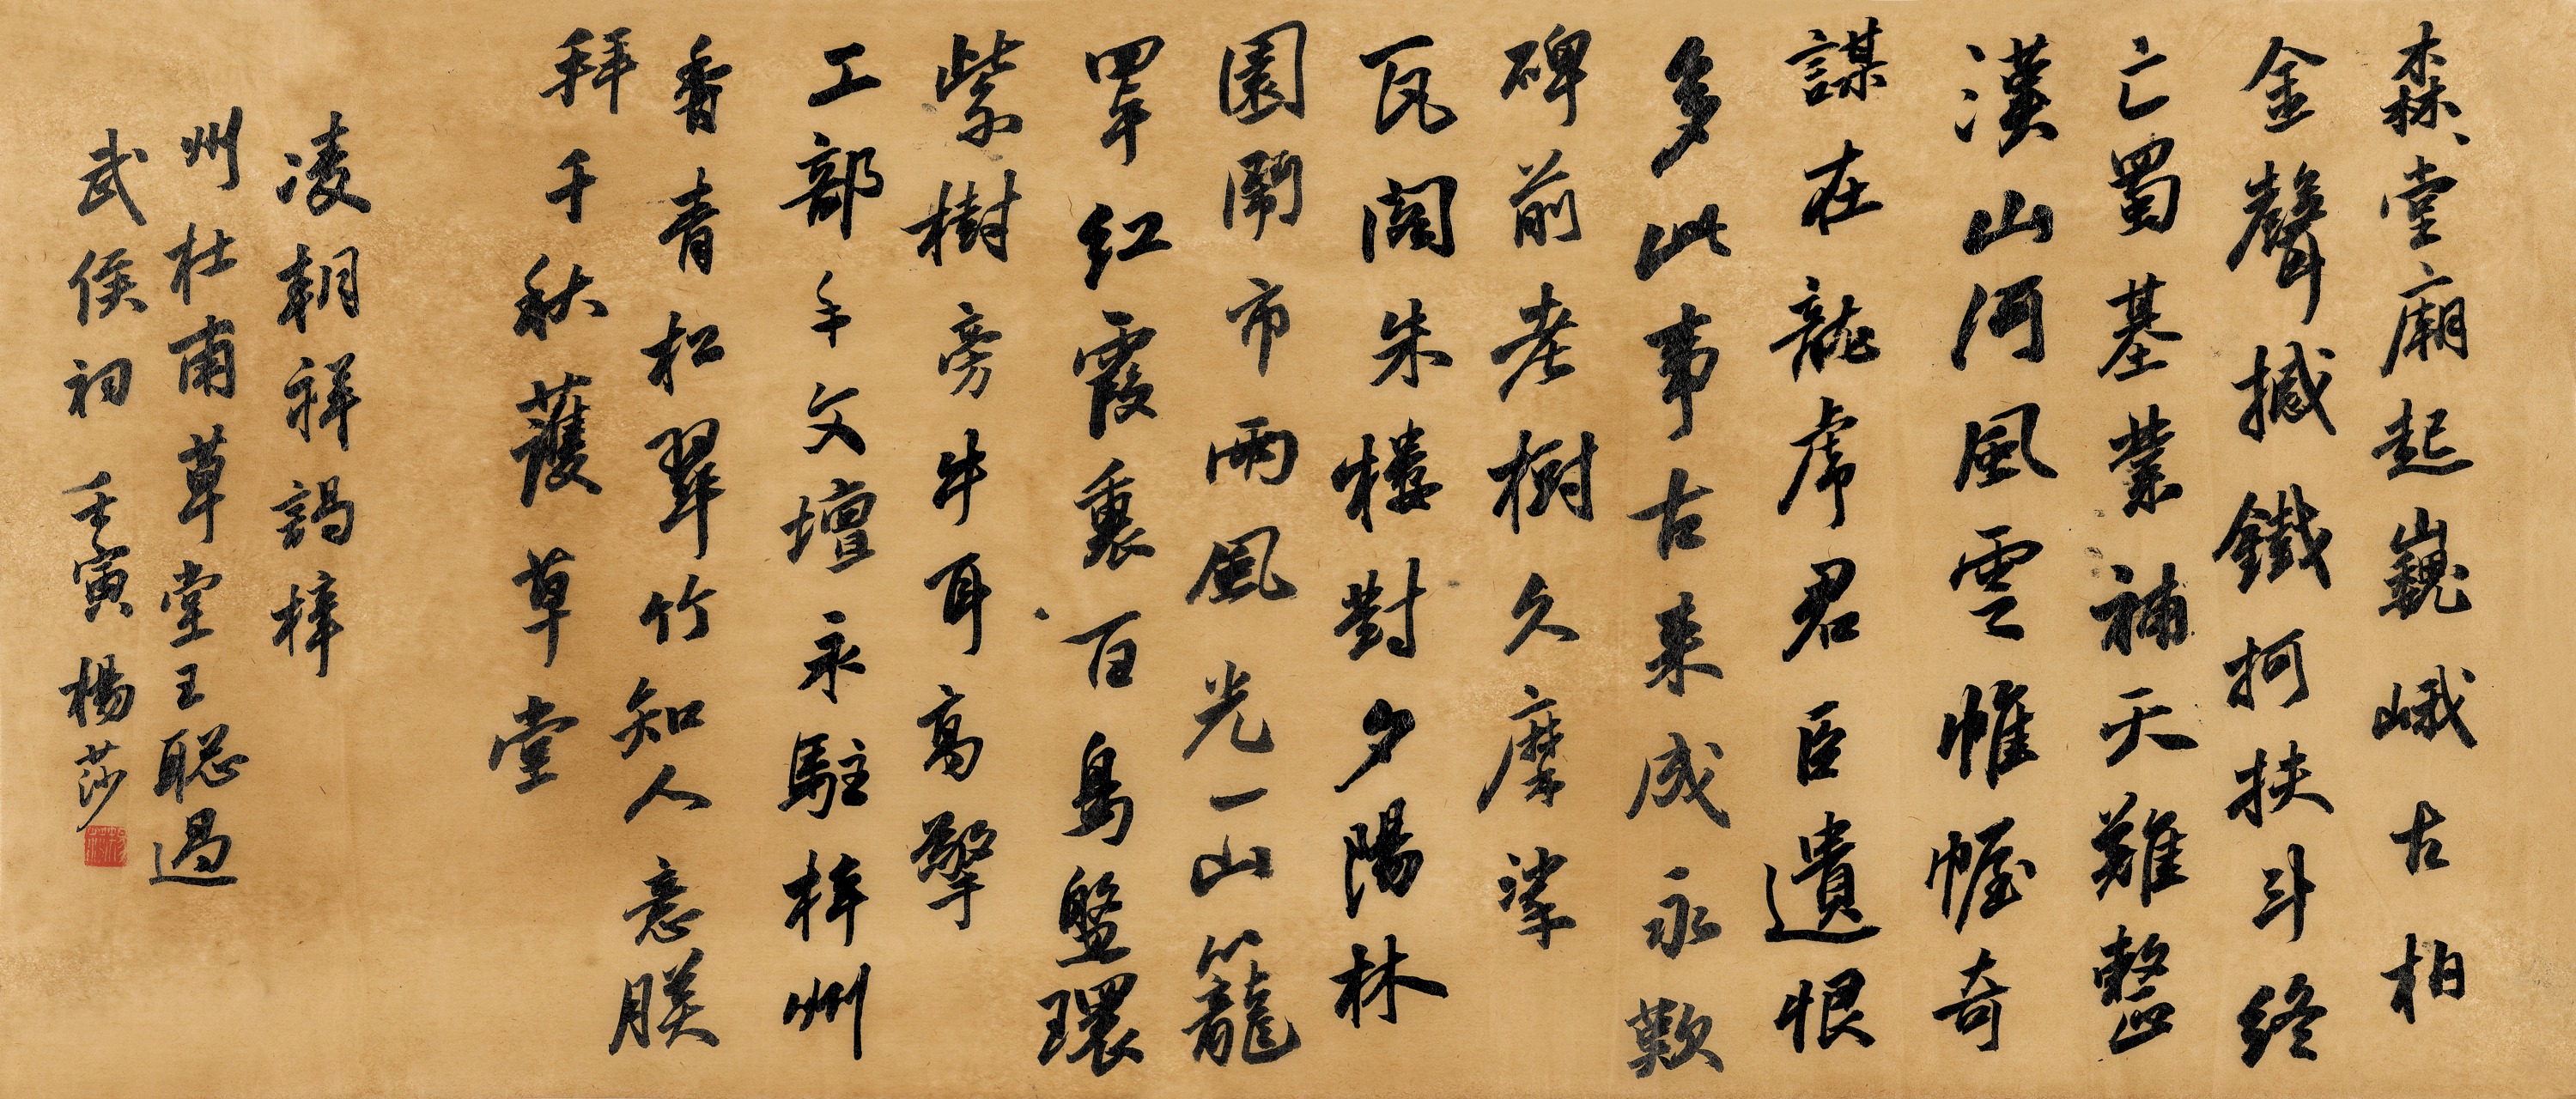 森、堂廟起巍峨古柏
金聲撼鐵柯扶斗終
亡蜀基業補天難整
漢山河風雲帷幄奇
謀在龍虎君臣遺恨
多此事古来成永歎
碑前老樹久摩挲
瓦閣朱樓對夕陽林
園鬧市兩風光一山籠
罩紅霞裏百鳥盤環
紫樹旁牛耳高擎
工部手文壇永駐梓州
香青松翠竹知人意膜
拜千秋護草堂
凌朝祥謁梓
州杜甫草堂王聪過
武侯祠 壬寅 楊莎